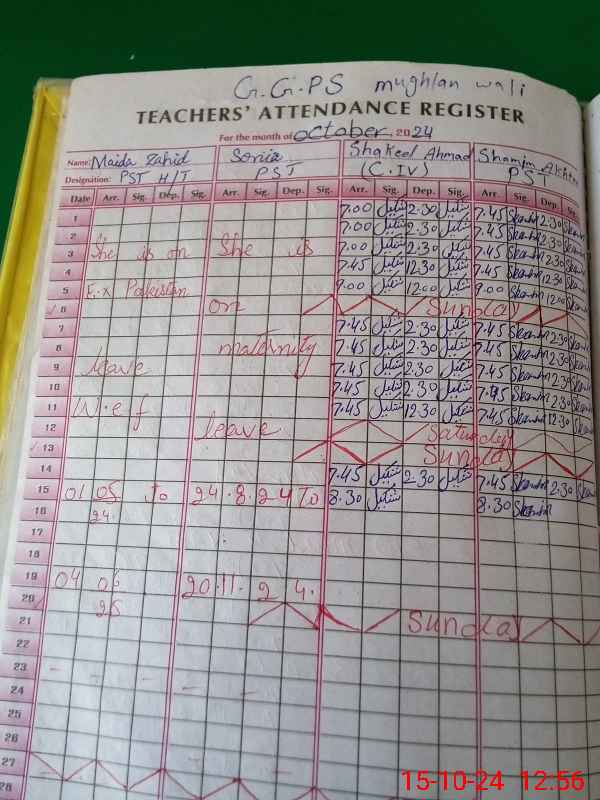 G.G.P.S mughlan wali
TEACHERS' ATTENDANCE REGISTER
For the month of October, 2024
Name: Maida Zahid Soniia Shakeel Ahmad Shamim Akhter
Designation: PST H/T PST (C.IV) PST
Date Arr. Sig. Dep. Sig. Arr. Sig. Dep. Sig. Arr. Sig. Dep. Sig. Arr. Sig. Dep. Sig.
1 7.00 شکیل 2.30 شکیل 7.45 2.30
2 7.00 شکیل 2.30 شکیل 7.45 2.30
3 She is on She is 7.00 شکیل 2.30 شکیل 7.45 2.30
4 7.45 شکیل 12.30 شکیل 7.45 12.30
5 Ex Pakistan 9.00 شکیل 12.00 شکیل 9.00 12.00
6 on Sunday
7 7.45 شکیل 2.30 شکیل 7.45 2.30
8 maternity 7.45 شکیل 2.30 شکیل 7.45 2.30
9 leave 7.45 شکیل 2.30 شکیل 7.45 2.30
10 7.45 شکیل 2.30 شکیل 7.45 2.30
11 w.e.f 7.45 شکیل 12.30 شکیل 7.45 12.30
12 leave Saturday
13 Sunday
14 7.45 شکیل 2.30 شکیل 7.45 2.30
15 01 05 To 24.8.24 To 8.30 شکیل 8.30
16 24
17
18
19 04 06 20.11.24.
20 25
21 Sunday
22
23
24
25
26
27
28
15-10-24 12:56